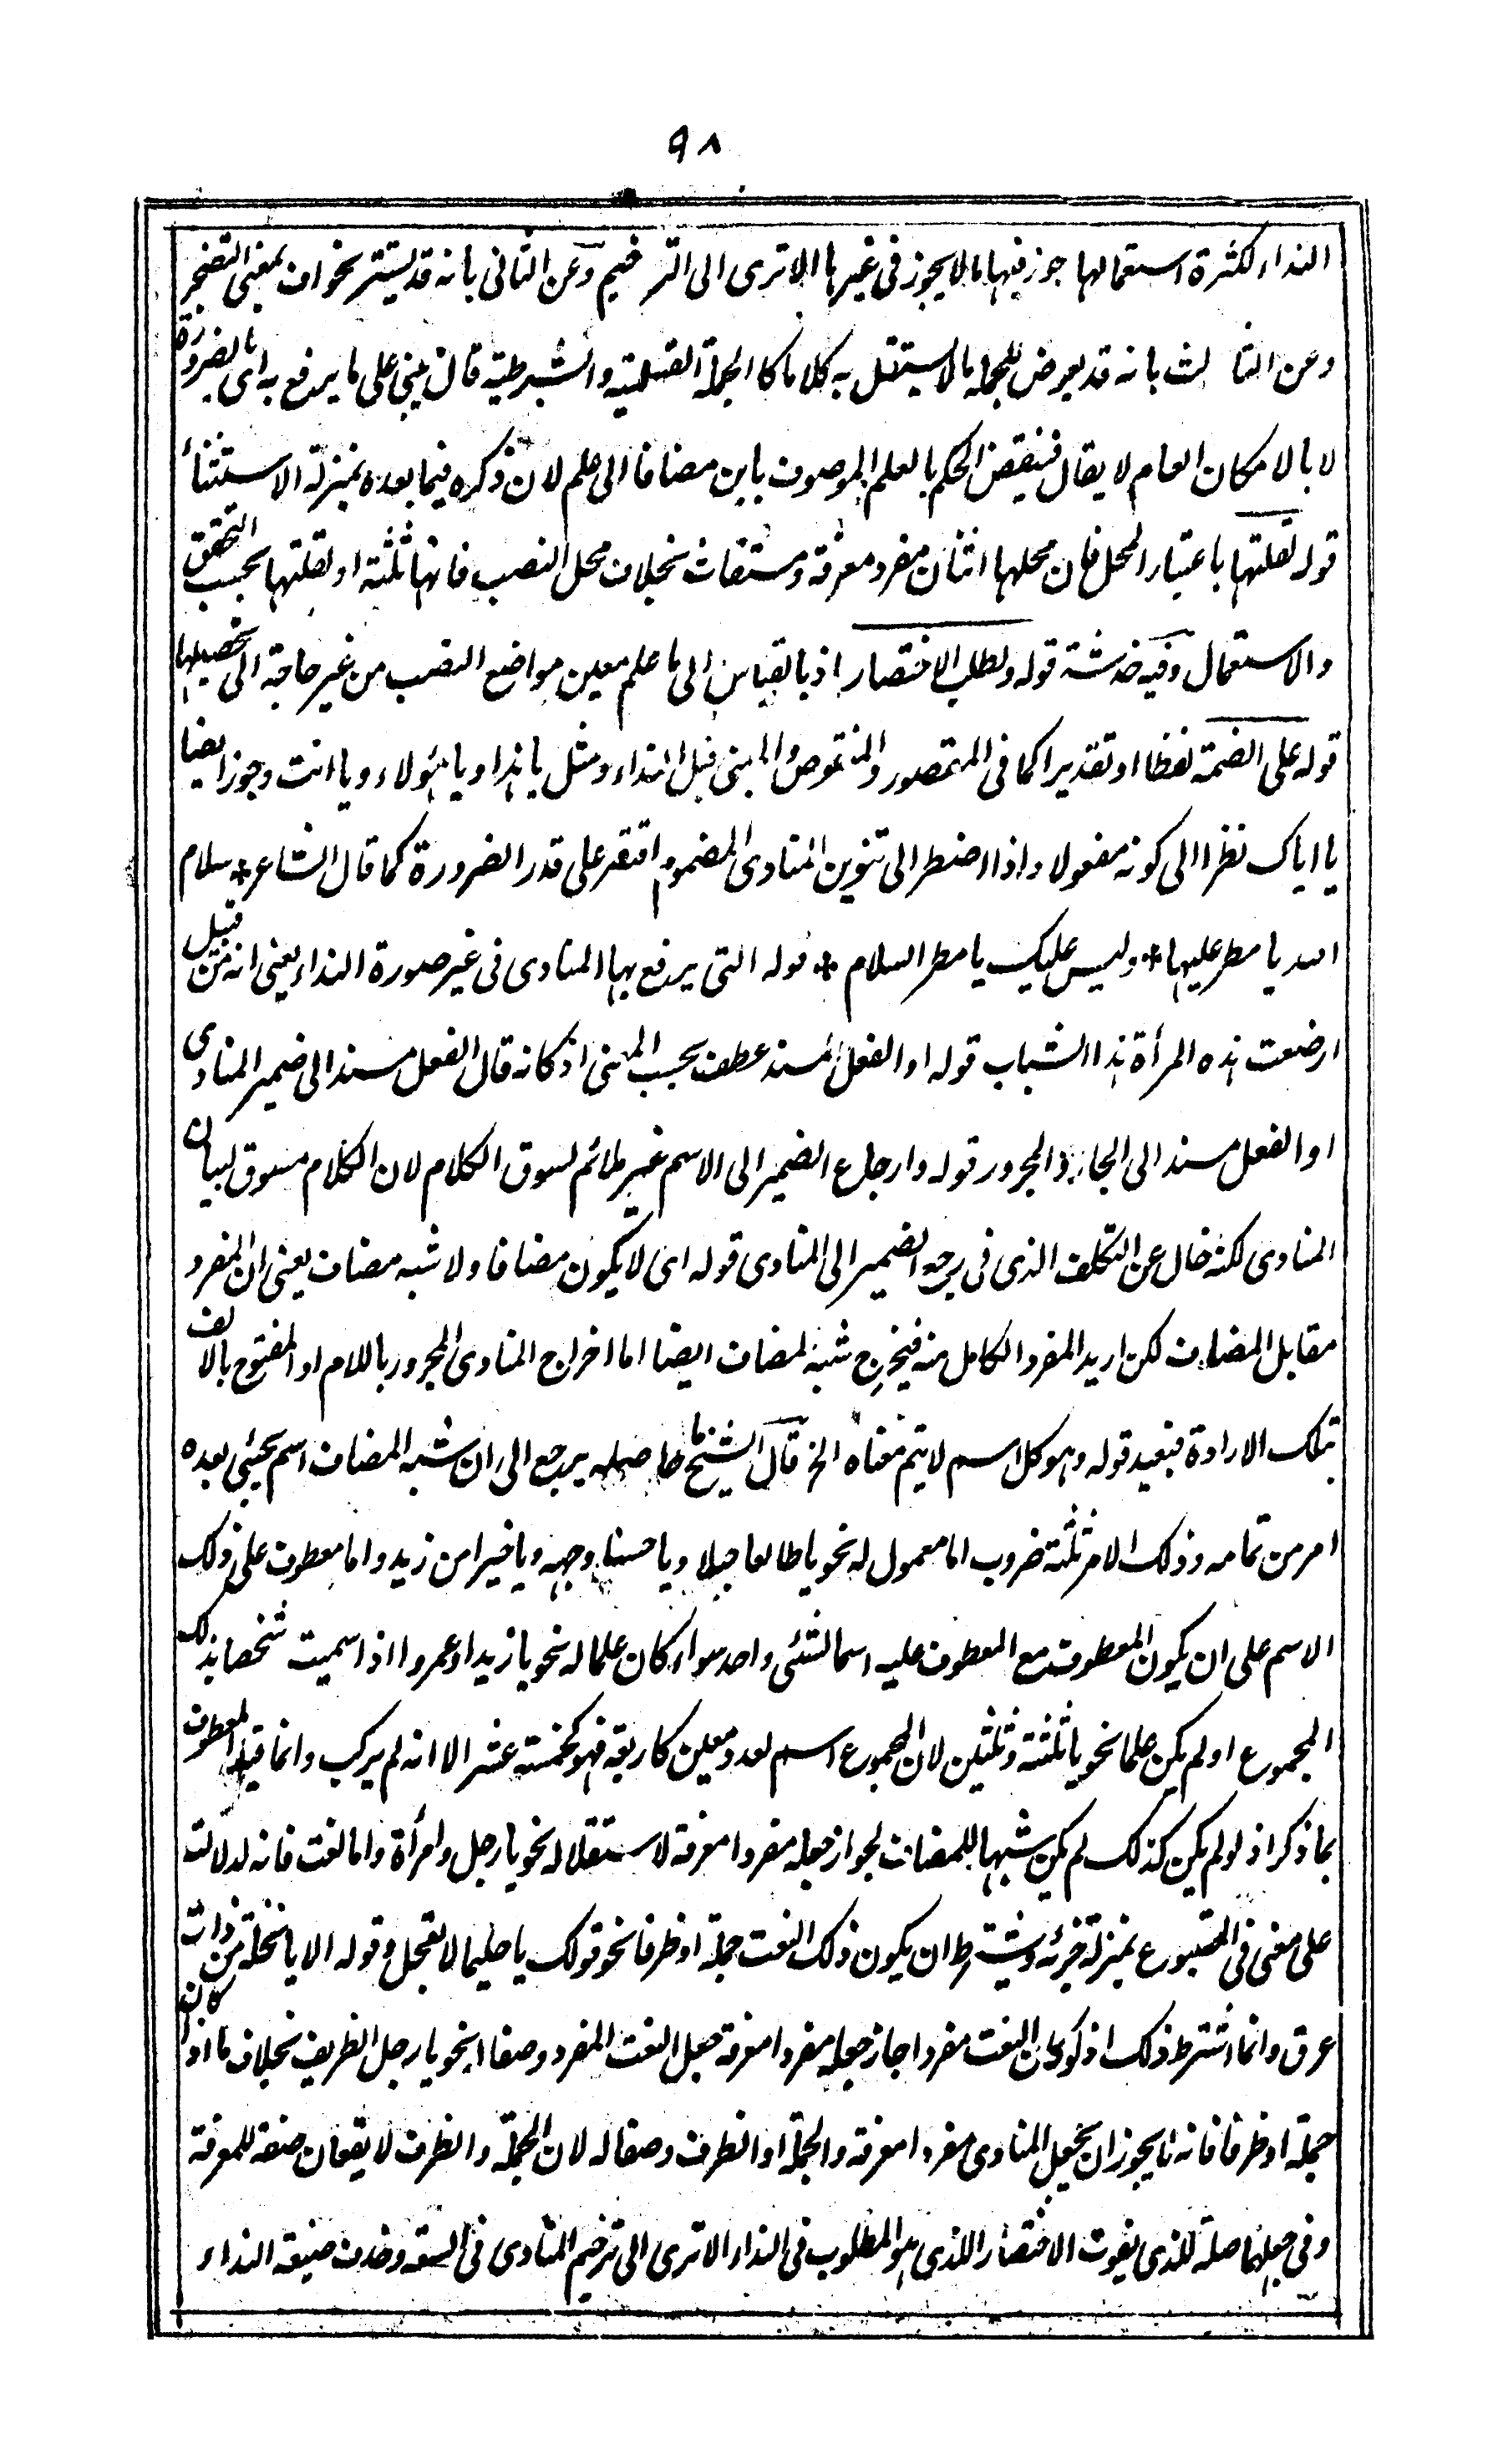 ٩٨
النداء لكثرة استعمالها جوز فيها ما لا يجوز فى غيرها الا ترى الى الترخيم وعن الثانى بانه قد يستتر نحو اف بمعنى اتضجر
وعن الثالث بانه قد يعرض للجملة ما لا يستقل به كلاما كالجملة القسمية والشرطية قال يبنى على ما يرفع به اى بالضرورة
لا بالامكان العام لا يقال فينقض الحكم بالعلم الموصوف بابن مضافا الى علم لان ذكره فيما بعده بمنزلة الاستثناء
قوله لقلتها باعتبار المحل فان محلها اثنان مفرد معرفة ومستغاث بخلاف محل النصب فانها ثلثة او لقلتها بحسب التحقق
والاستعمال وفيه خدشة قوله ولطلب الاختصار اذ بالقياس الى ما علم معين مواضع النصب من غير حاجة الى تحصيلها
قوله على الضمة لفظا او تقديرا كما فى المقصور والمنقوص والمبنى قبل النداء ومثل يا هذا ويا هؤلاء ويا انت وجوز ايضا
يا اياك نظرا الى كونه مفعولا واذا اضطر الى تنوين المنادى المضموم اقتقر على قدر الضرورة كما قال الشاعر * سلام
الله يا مطر عليها * وليس عليك يا مطر السلام * قوله التى يرفع بها المنادى فى غير صورة النداء يعنى انه من قبيل
ارضعت هذه المرأة هذا الشباب قوله او الفعل مسند عطف بحسب المعنى اذ كانه قال الفعل مسند الى ضمير المنادى
او الفعل مسند الى الجار والمجرور قوله وارجاع الضمير الى الاسم غير ملائم لسوق الكلام لان الكلام مسوق لبيان
المنادى لكنه خال عن التكلف الذى فى رجع الضمير الى المنادى قوله اى لا يكون مضافا ولا شبه مضاف يعنى ان المفرد
مقابل المضاف لكن اريد المفرد الكامل منه فيخرج شبه المضاف ايضا اما اخراج المنادى المجرور باللام او المفتوح بالالف
بتلك الارادة فبعيد قوله وهو كل اسم لا يتم معناه الخ قال الشيخ ما حاصله يرجع الى ان شبه المضاف اسم يجيئ بعده
امر من تمامه وذلك الامر ثلثة ضروب اما معمول له نحو يا طالعا جبلا ويا حسنا وجهه ويا خيرا من زيد واما معطوف على ذلك
الاسم على ان يكون المعطوف مع المعطوف عليه اسما لشئى واحد سواء كان علما له نحو يا زيدا وعمروا اذا سميت شخصا بذلك
المجموع او لم يكن علما نحو يا ثلثة وثلثين لان المجموع اسم لعدد معين كاربعة فهو كخمسة عشر الا انه لم يركب وانما قيد المعطوف
بما ذكر اذ لو لم يكن كذلك لم يكن شبها للمضاف لجواز جعله مفردا معرفة لاستقلاله نحو يا رجل وامرأة واما نعت فانه لدلالته
على معنى فى المتبوع بمنزلة جزئه ويشترط ان يكون ذلك النعت جملة او ظرفا نحو قولك يا حليما لا تعجل وقوله الا يا نخلة من ذات
عرق وانما اشترط ذلك اذ لو كان النعت مفردا جاز جعله مفردا معرفة جعل النعت المفرد وصفا نحو يا رجل الظريف بخلاف ما اذا كان
جملة او ظرفا فانه لا يجوز ان يجعل المنادى مفردا معرفة والجملة او الظرف وصفا له لان الجملة والظرف لا يقعان صفة للمعرفة
وفى جعلهما صلة للذى يفوت الاختصار اللذى هو المطلوب فى النداء الا ترى الى ترخيم المنادى فى السعة وحذف صيغة النداء